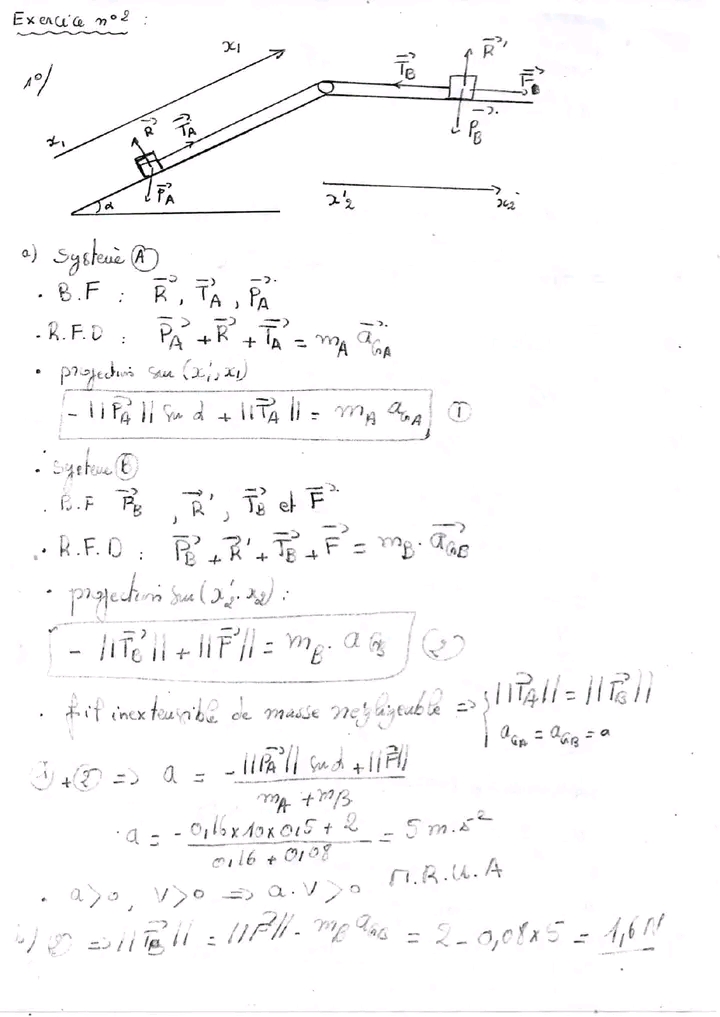 Exercice n°2 :
1°/
x₁
x'₁
R⃗
T⃗A
P⃗A
α
T⃗B
R⃗'
F⃗
P⃗B
x'₂
x₂
a) Système Ⓐ
. B.F : R⃗, T⃗A, P⃗A
. R.F.D : P⃗A + R⃗ + T⃗A = mA a⃗GA
. projection sur (x'₁, x₁)
- ||P⃗A|| sin α + ||T⃗A|| = mA aGA ①
. système Ⓑ
. B.F P⃗B, R⃗', T⃗B et F⃗
. R.F.D : P⃗B + R⃗' + T⃗B + F⃗ = mB . a⃗GB
. projection sur (x'₂ . x₂) :
- ||T⃗B|| + ||F⃗|| = mB . aGB ②
. fil inextensible de masse négligeable => { ||T⃗A|| = ||T⃗B||
aGA = aGB = a
① + ② => a = (-||P⃗A|| sin α + ||F⃗||) / (mA + mB)
a = (-0,16x10x0,5 + 2) / (0,16 + 0,08) = 5 m.s²
. a>0, v>0 => a.v>0 M.R.U.A
b) ② => ||T⃗B|| = ||F⃗|| - mB aGB = 2 - 0,08x5 = 1,6 N